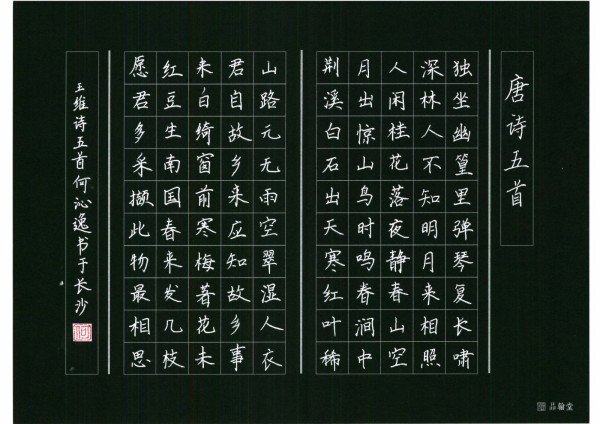 唐诗五首
独坐幽篁里弹琴复长啸
深林人不知明月来相照
人闲桂花落夜静春山空
月出惊山鸟时鸣春涧中
荆溪白石出天寒红叶稀
山路元无雨空翠湿人衣
君自故乡来应知故乡事
来白绮窗前寒梅著花未
红豆生南国春来发几枝
愿君多采撷此物最相思
王维诗五首何沁逸书于长沙
品翰堂